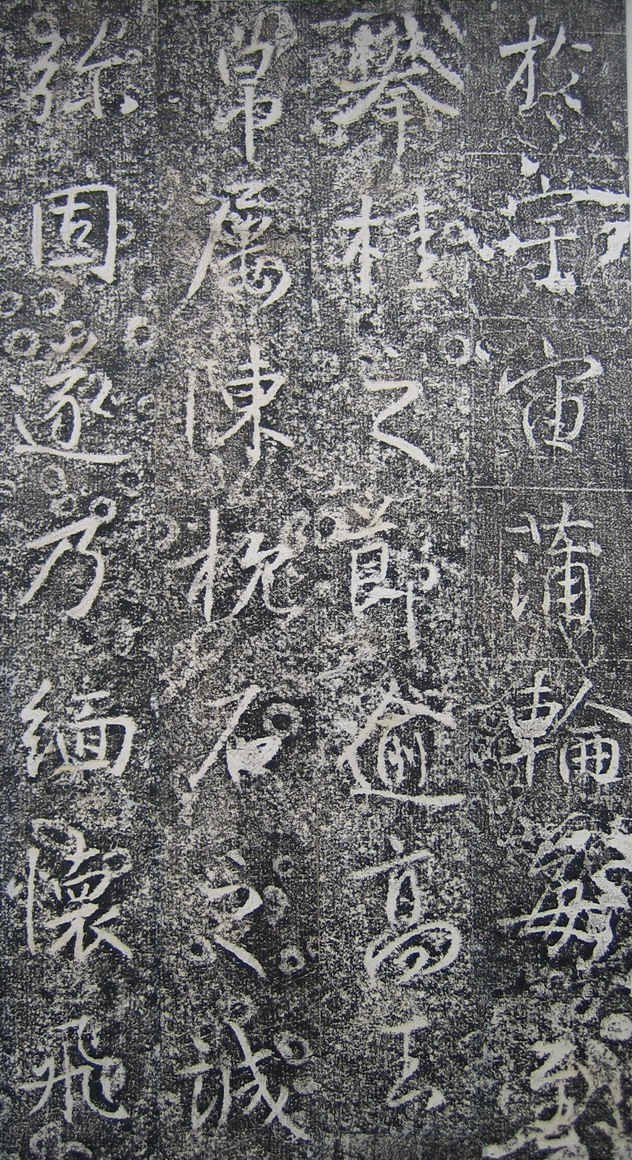 於宇宙蒲輪每到
攀桂之節逾高玉
帛屢陳枕石之誠
弥固遂乃緬懷飛